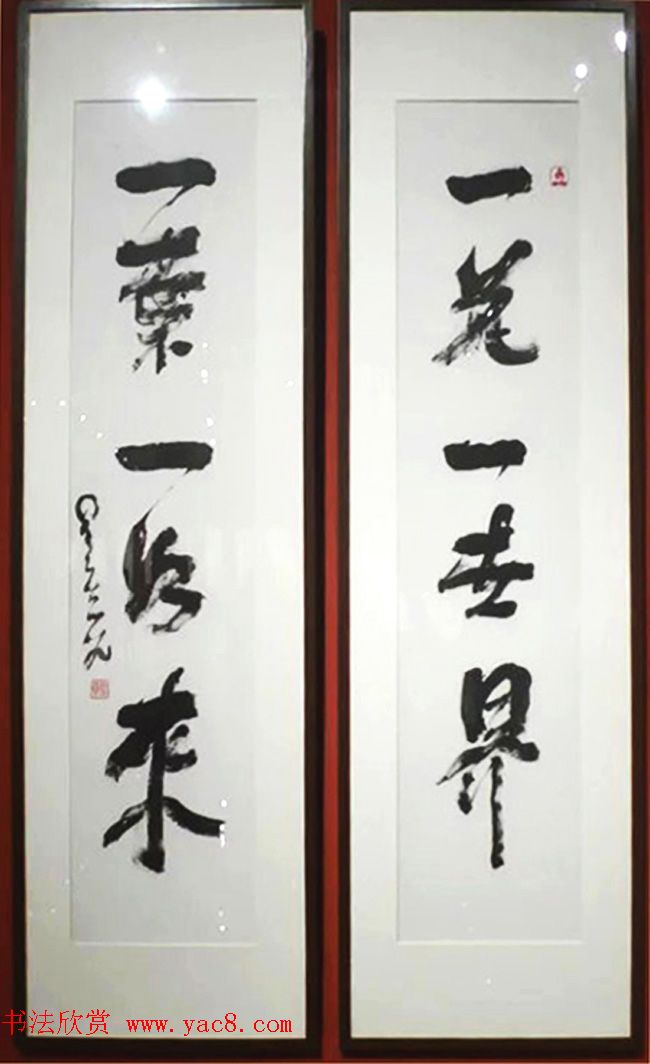 一花一世界
一葉一如來
书法欣赏 www.yac8.com